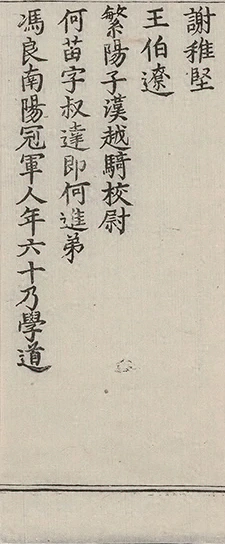 謝稚堅
王伯遼
繁陽子漢越騎校尉
何苗字叔達即何進弟
馮良南陽冠軍人年六十乃學道